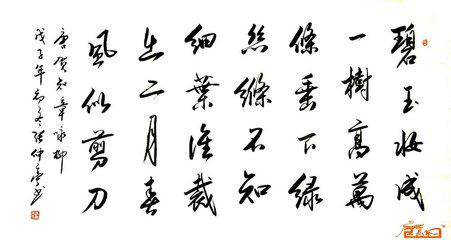 碧玉妝成
一樹高萬
條垂下綠
絲縧不知
細葉誰裁
出二月春
風似剪刀
唐賀知章詠柳
戊子年